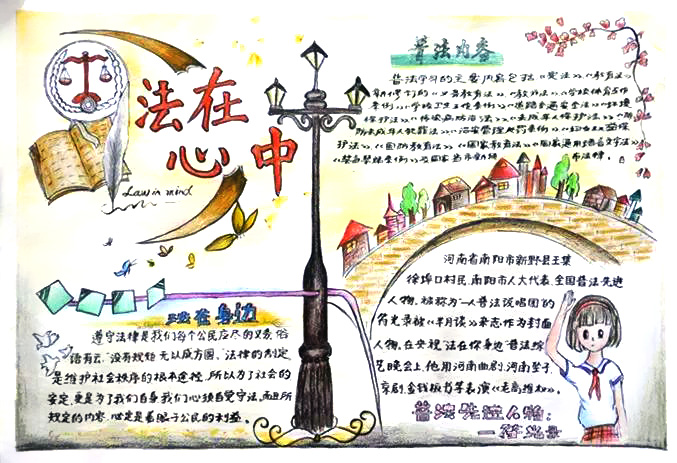 法在
心中
Law in mind
普法内容
普法学习的主要内容包括《宪法》《教育法》
《义务教育法》《教师法》《学校体育工作
条例》《学校卫生工作条例》《道路交通安全法》《环境
保护法》《传染病防治法》《未成年人保护法》《预
防未成年人犯罪法》《治安管理处罚条例》
护法》《国防教育法》《国家教育法》《国家通用语言文字法》
河南省南阳市新野县王集
徐埠口村民,南阳市人大代表,全国普法先进
人物,被称为"一人普法说唱团"的
符光录被《半月谈》杂志作为封面
人物,在央视"法在你身边"普法综
艺晚会上,他用河南曲剧,河南坠子,
京剧,金钱板书等表演《老高维权》。
普法先进人物:
一符光录
法在身边
遵守法律是我们每个公民应尽的义务,俗
语有云,"没有规矩,无以成方圆,"法律的制定,
是维护社会秩序的根本途径,所以为了社会的
安定,更是为了我们自身,我们必须自觉守法,而且所
规定的内容,也定是着眼于公民的利益。